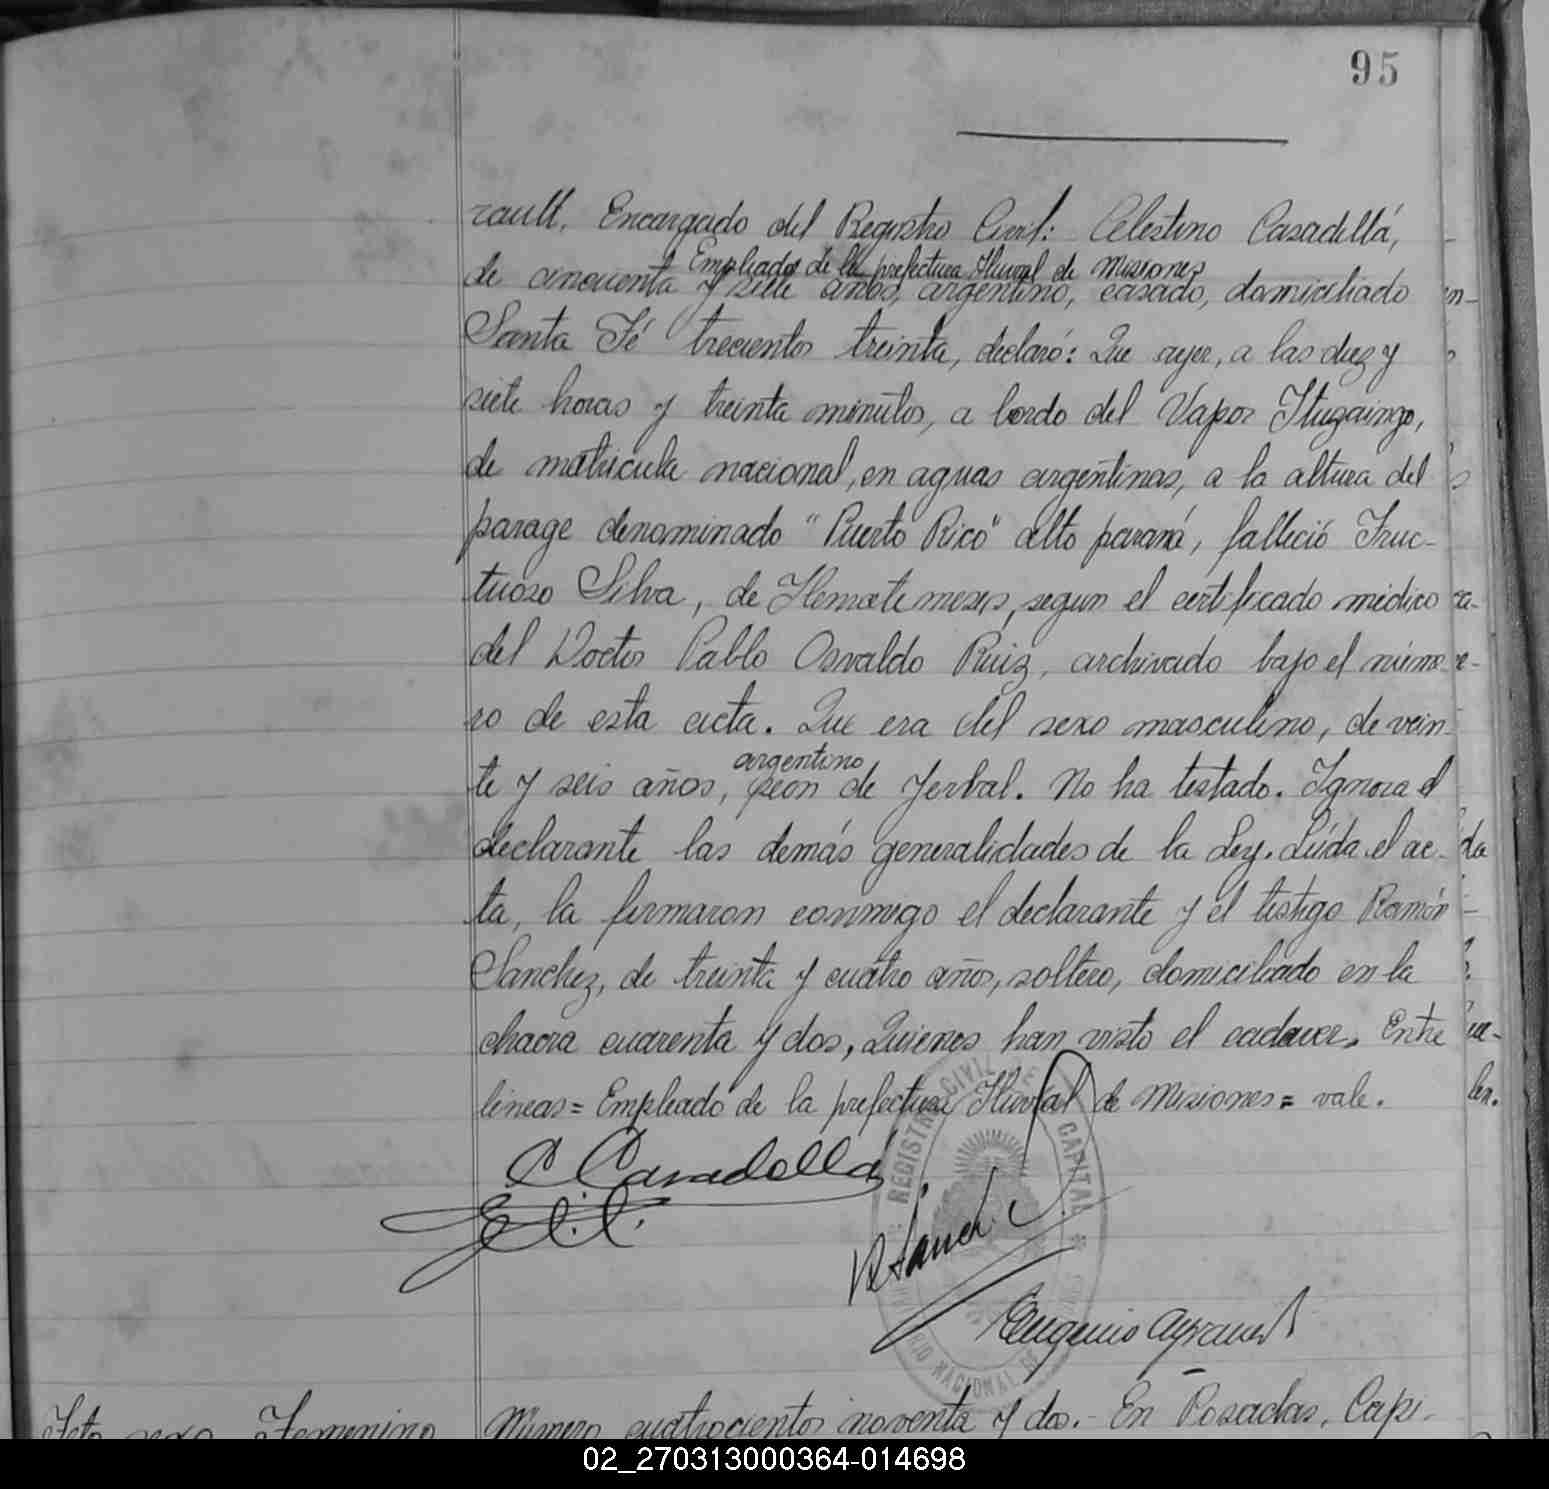 95
rault, Encargado del Registro Civil: Celestino Casadellá,
Empleado de la prefectura Fluval de Misiones
de cincuenta y siete años, argentino, casado, domiciliado
Santa Fé trecientos treinta, declaró: Que ayer, a las diez y
siete horas y treinta minutos, a bordo del Vapor Ituzaingo,
de matricula nacional, en aguas argentinas, a la altura del
parage denominado "Puerto Rico" alto paraná, falleció Fruc-
tuoso Silva, de Hematemesis, segun el certificado médico
del Doctor Pablo Osvaldo Ruiz, archivado bajo el núme-
ro de esta acta. Que era del sexo masculino, de vein-
argentino
te y seis años, peon de Yerbal. No ha testado. Ignora el
declarante las demás generalidades de la Ley. Leída el ac-
ta, la firmaron conmigo el declarante y el testigo Ramón
Sanchez, de treinta y cuatro años, soltero, domiciliado en la
chacra cuarenta y dos, Quienes han visto el cadaver. Entre
lineas= Empleado de la prefectura Fluvial de Misiones= vale.
C Casadellá
R Sanch
REGISTRO CIVIL DE CAPITAL
NACIONAL DE
Eugenio Ayrault
Feto sexo Femenino
Número cuatrocientos noventa y dos.- En Posadas, Capi-
02_270313000364-014698